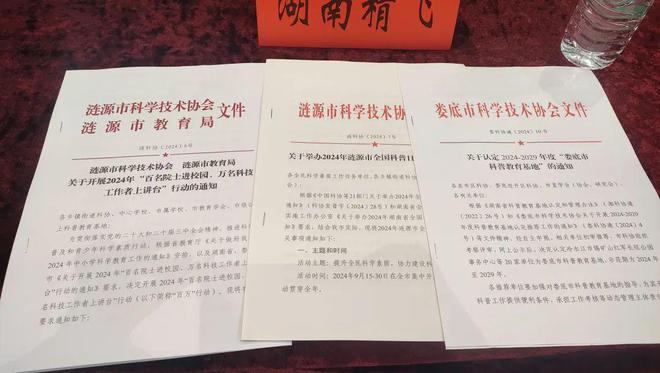 湖南精飞
涟源市科学技术协会
涟源市教育局
文件
涟科协〔2024〕6号
涟源市科学技术协会 涟源市教育局
关于开展2024年“百名院士进校园、万名科技
工作者上讲台”行动的通知
各乡镇街道科协、中心学校、市属学校、市教育学会、市级
上科普教育基地:
为贯彻落实党的二十大和二十届三中全会精神,推进科
普及和青少年科学素质行动,根据省教育厅《关于做好
2024年中小学科学教育工作的通知》安排,以及湖南省、娄
市《关于开展2024年“百名院士进校园、万名科技工作者
台”行动的通知》要求,决定开展2024年“百名院士进校园、
名科技工作者上讲台”行动(以下简称“百万”行动)。现将
要求通知如下:
涟源市科学技术协
涟科协〔2024〕7号
关于举办2024年涟源市全国科普日
各全民科学素质工作目标责任单位、各乡镇街道科
根据《中国科协等21部门关于举办2024年全
通知》(科协发普字〔2024〕28号)和湖南省全
实施工作办公室《关于举办2024年湖南省全国
要求,结合我市实际,现将2024年涟源市全
关事项通知如下:
一、主题和时间
活动主题:提升全民科学素质,协力建设科
活动时间:2024年9月15-30日在全市集中开
动贯穿全年。
娄底市科学技术协会文件
娄科协通〔2024〕10号
关于认定2024-2029年度“娄底市
科普教育基地”的通知
各县市区科协、娄底经开区科协、市直学会(协会、研究会)、
各有关单位:
根据《湖南省科普教育基地认定和管理办法》(湘科协通
〔2022〕26号)和《娄底市科学技术协会关于开展2024-202
9年度科普教育基地认定推荐工作的通知》(娄科协通〔2024〕4
号)等文件精神,经自主申报、相关单位初审推荐、市科协组织
专家评审、网上公示后,决定认定冷水江市锡矿山社
事务中心等20家单位为娄底市科普教育基地,示范期为2024年
至2029年。
各推荐单位要加强对娄底市科普教育基地的指导,为其开
科普工作提供便利条件,承担工作考核等动态管理主体责任